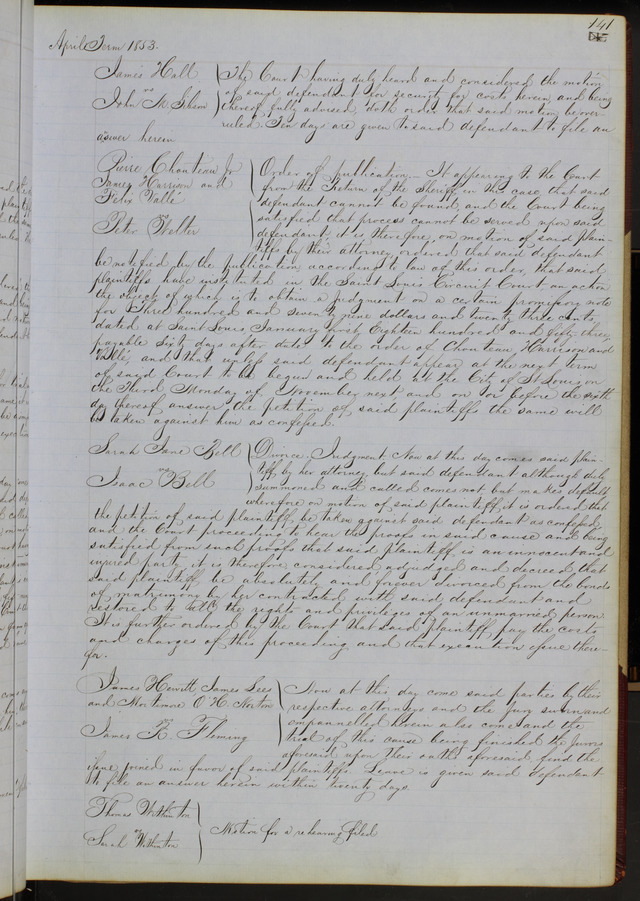 141
April Term 1853.
James Hall
vs
John M.
The Court having duly heard and considered the motion
of said defendant for security for costs herein, and being
thereof fully advised, doth order that said motion be over-
ruled. Ten days are given to said defendant to file an
answer herein
Pierre Chouteau Jr
James Harrison and
Felix Vallé
vs
Peter Weller
Order of publication. It appearing to the Court
from the Return of the Sheriff in the case, that said
defendant cannot be found, and the Court being
satisfied that process cannot be served upon said
defendant, it is therefore, on motion of said plain-
tiffs by their attorney, ordered that said defendant
be notified by the publication according to law of this order, that said
plaintiffs have instituted in the Saint Louis Circuit Court an action
the object of which is to obtain a judgment on a certain promissory note
for Three hundred and seventy nine dollars and twenty three cents,
dated at Saint Louis January first Eighteen hundred and fifty three,
payable sixty days after date to the order of Chouteau, Harrison and
Vallé, and that unless said defendant appear at the next term
of said Court to be begun and held at the City of St Louis on
the Third Monday of November next and on or before the sixth
day thereof answer the petition of said plaintiffs the same will
be taken against him as confessed.
Sarah Jane Bell
vs
Isaac Bell
Divorce. Judgment Now at this day comes said plain-
tiff by her attorney but said defendant although duly
summoned and called comes not, but makes default
wherefore on motion of said plaintiff, it is ordered that
the petition of said plaintiff, be taken against said defendant as confessed
and the Court proceeding to hear the proofs in said cause and being
satisfied from such proofs that said plaintiff is an innocent and
injured party, it is therefore considered, adjudged and decreed, that
said plaintiff be absolutely and forever divorced from the bonds
of matrimony by her contracted with said defendant and
restored to all the rights and privileges of an unmarried person.
It is further ordered by the Court that said plaintiff pay the costs
and charges of this proceeding and that execution issue there-
for.
James Hewitt, James Lees
and Mortimore O H Norton
vs
James R. Fleming
Now at this day come said parties by their
respective attorneys and the Jury sworn and
empannelled herein also come and the
trial of this cause being finished the Jurors
aforesaid upon their oaths aforesaid, find the
issue joined in favor of said plaintiffs. Leave is given said defendant
to file an answer herein within twenty days.
Thomas Withinton
vs
Sarah Withinton
Motion for a rehearing filed